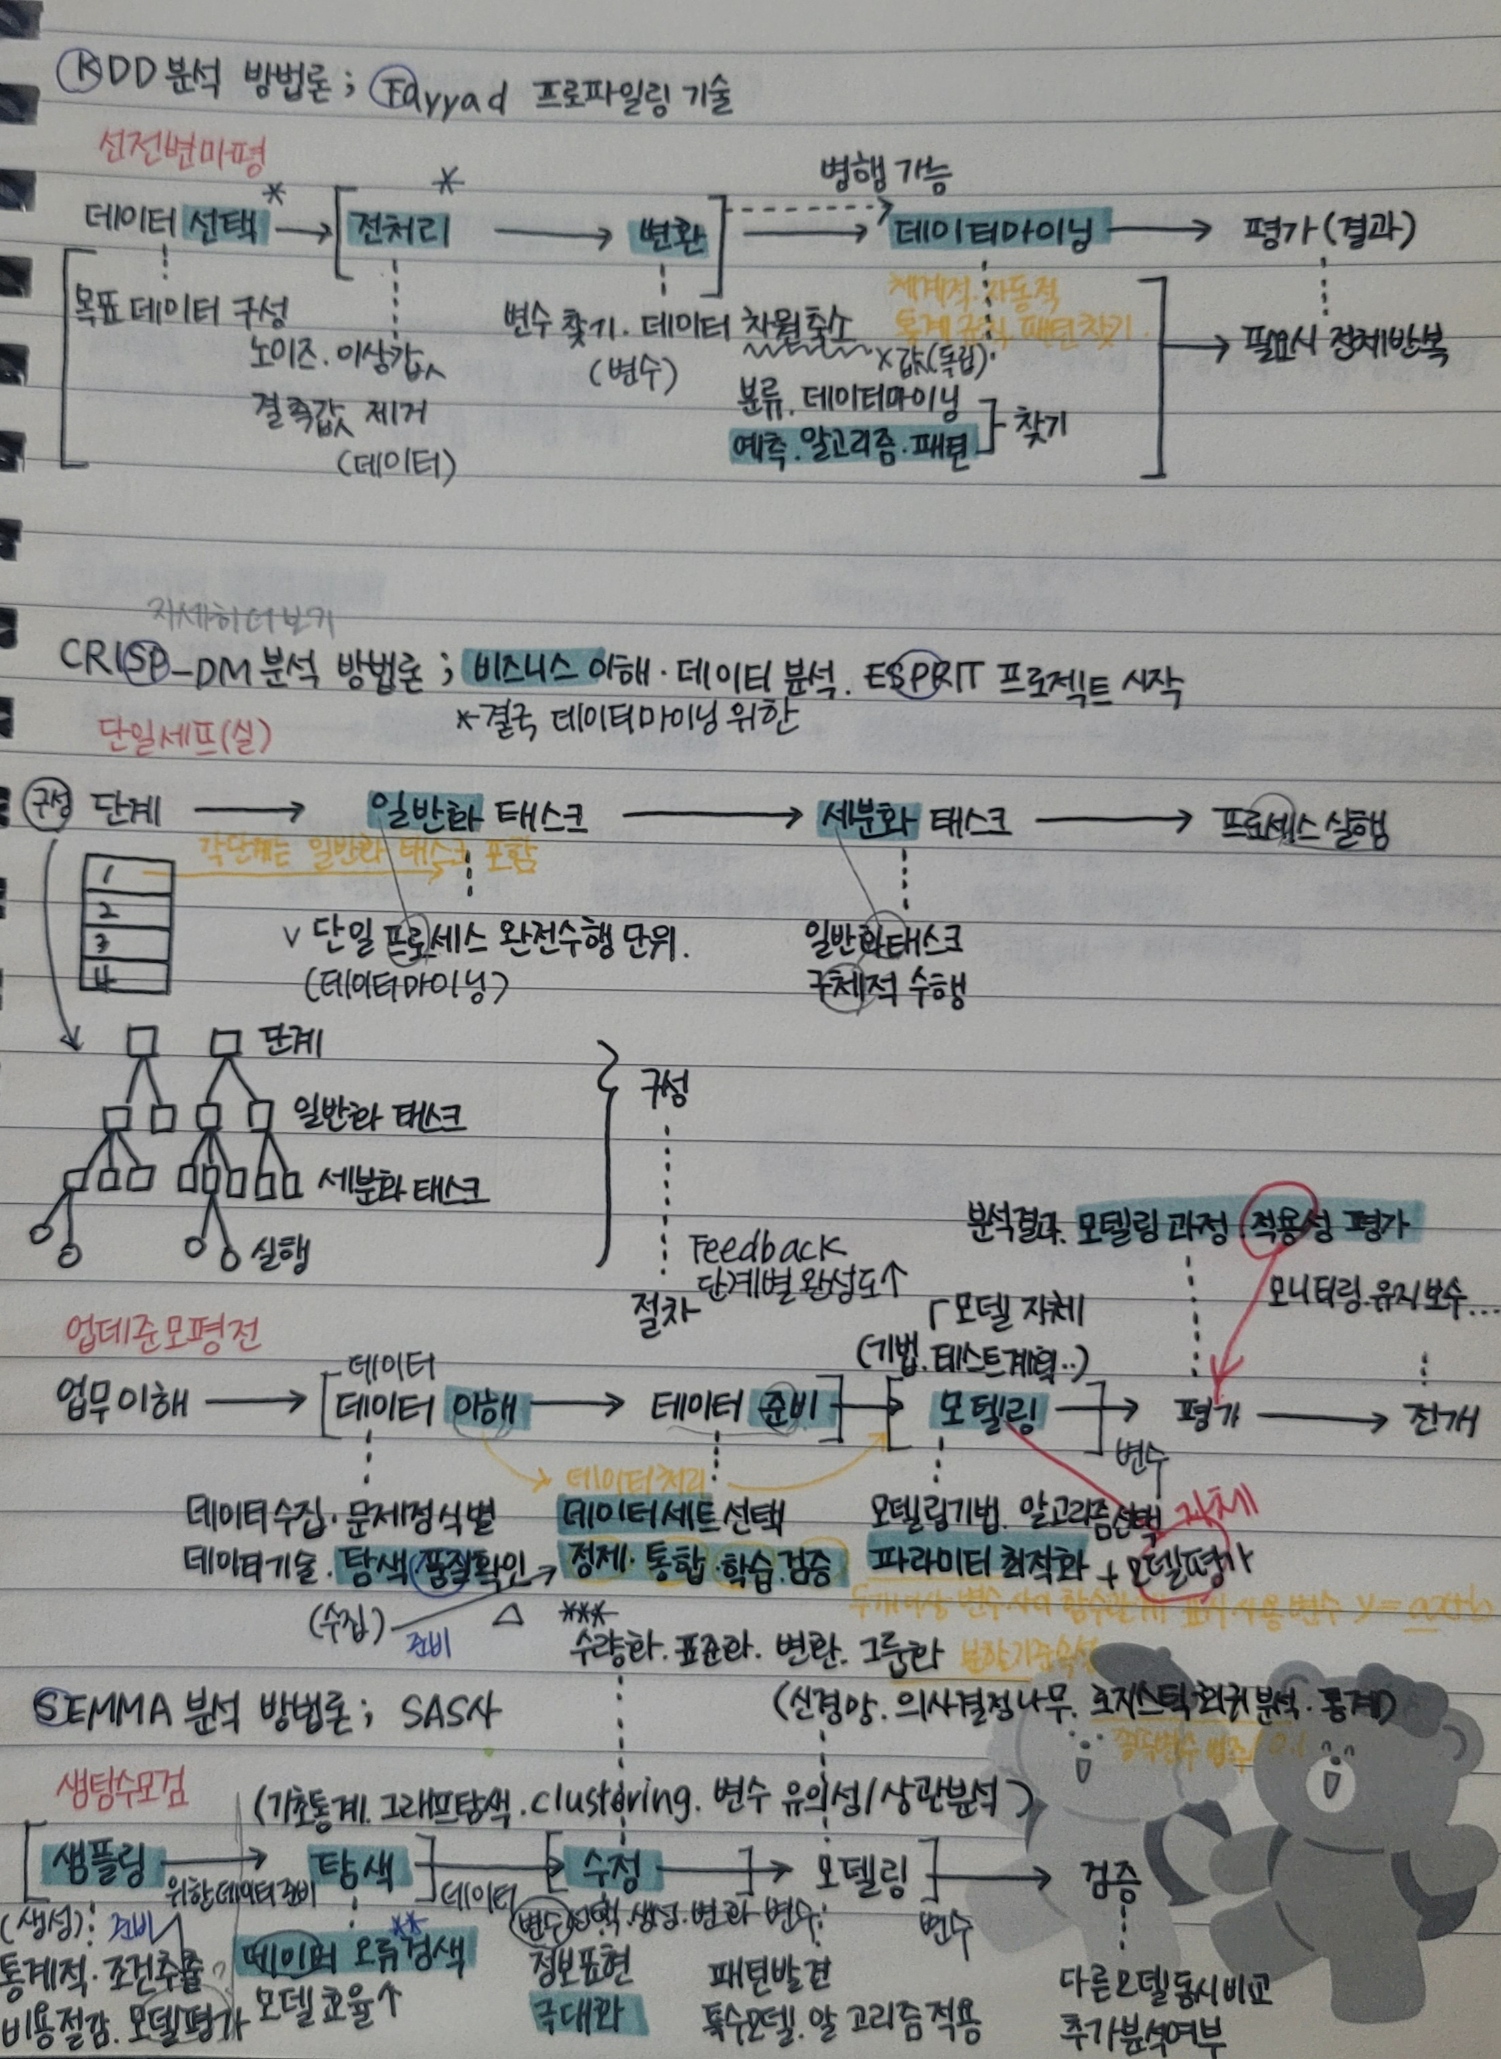 KDD 분석 방법론 ; Fayyad 프로파일링 기술
선전변마평
병행 가능
데이터 선택 * → [ 전처리 * → 변환 ] → 데이터마이닝 → 평가(결과)
목표 데이터 구성
노이즈. 이상값
결측값 제거
(데이터)
변수 찾기. 데이터 차원축소
(변수)
체계적. 자동적
통계 규칙. 패턴찾기.
x값(독립).
분류. 데이터마이닝
예측. 알고리즘. 패턴
찾기
→ 필요시 정제반복
자세히 더보기
CRISP_DM 분석 방법론 ; 비즈니스 이해. 데이터 분석. ESPRIT 프로젝트 시작
*결국 데이터마이닝 위한
단일세프(실)
구성 단계 → 일반화 태스크 → 세분화 태스크 → 프로세스 실행
각단계는 일반화 태스크 포함
1
2
3
4
v 단일 프로세스 완전수행 단위.
(데이터마이닝)
일반화태스크
구체적 수행
단계
일반화 태스크
세분화 태스크
실행
구성
Feedback
단계별 완성도↑
절차
분석결과. 모델링 과정. 적용성 평가
모니터링. 유지보수...
모델 자체
(기법. 테스트계획..)
업데준모평전
데이터
업무이해 → [ 데이터 이해 → 데이터 준비 ] → [ 모델링 → ] 평가 → 전개
변수
데이터처리
데이터수집. 문제점식별
데이터기술. 탐색. 품질확인 →
(수집)
준비
△
데이터세트 선택
정제. 통합. 학습. 검증
***
수량화. 표준화. 변환. 그룹화
모델링기법. 알고리즘선택
자체
파라미터 최적화 + 모델평가
두개이상 변수 사이 함수관계 표기 사용 변수 y=ax+b
분할기준속성
SEMMA 분석 방법론 ; SAS사
(신경망. 의사결정나무. 로지스틱회귀분석. 통계)
샘탐수모검
(기초통계. 그래프탐색. clustering. 변수 유의성/상관분석)
[ 샘플링 → 탐색 ] → [ 수정 → ] 모델링 ] → 검증
위한 데이터 준비
데이터
변수
(생성): 준비
통계적. 조건추출
비용절감. 모델평가
**
데이터 오류검색
모델 효율↑
변수 선택. 생성. 변화 변수
정보표현
극대화
패턴발견
특수모델. 알고리즘적용
다른모델 동시비교
추가분석여부